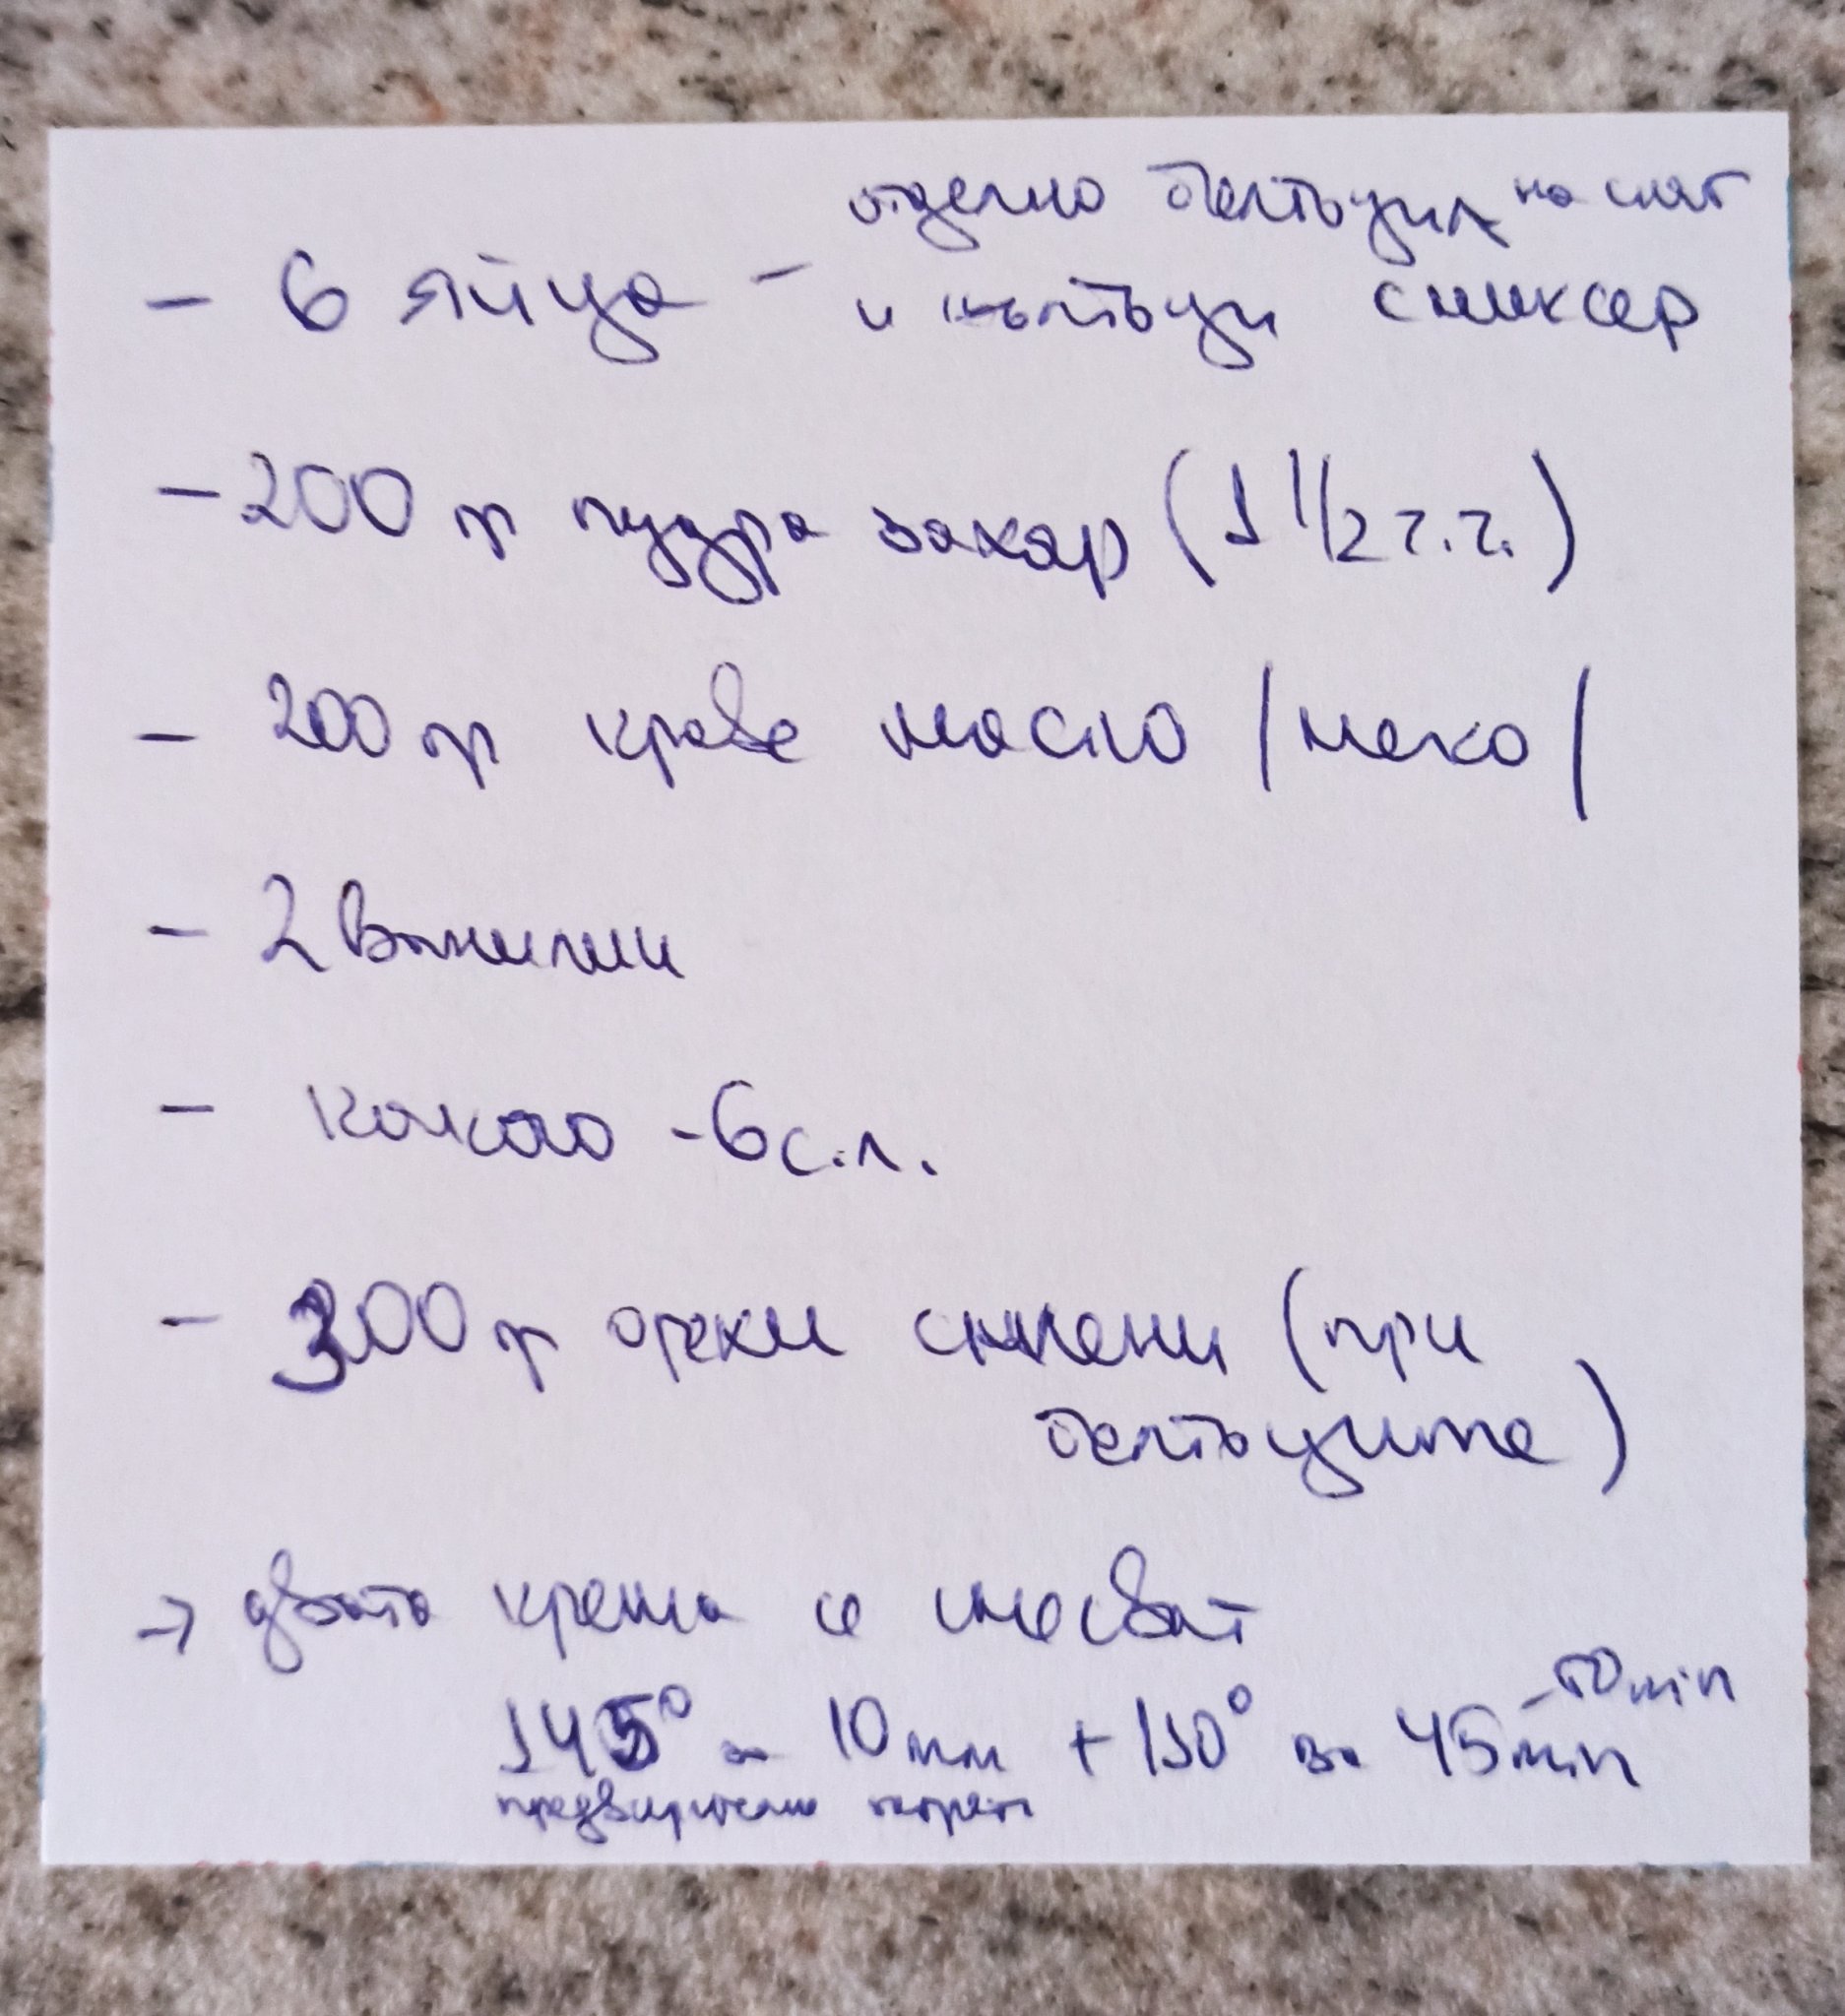 отделно белтъци на сняг
- 6 яйца - и жълтъци с миксер
- 200 гр пудра захар (1 1/2 ч.ч.)
- 200 гр краве масло /меко/
- 2 ванилии
- какао - 6 с.л.
- 300 гр орехи смлени (при
белтъците)
→ двата крема се смесват
- 50 min
145° 10 мин + 150° за 45 min
предварително